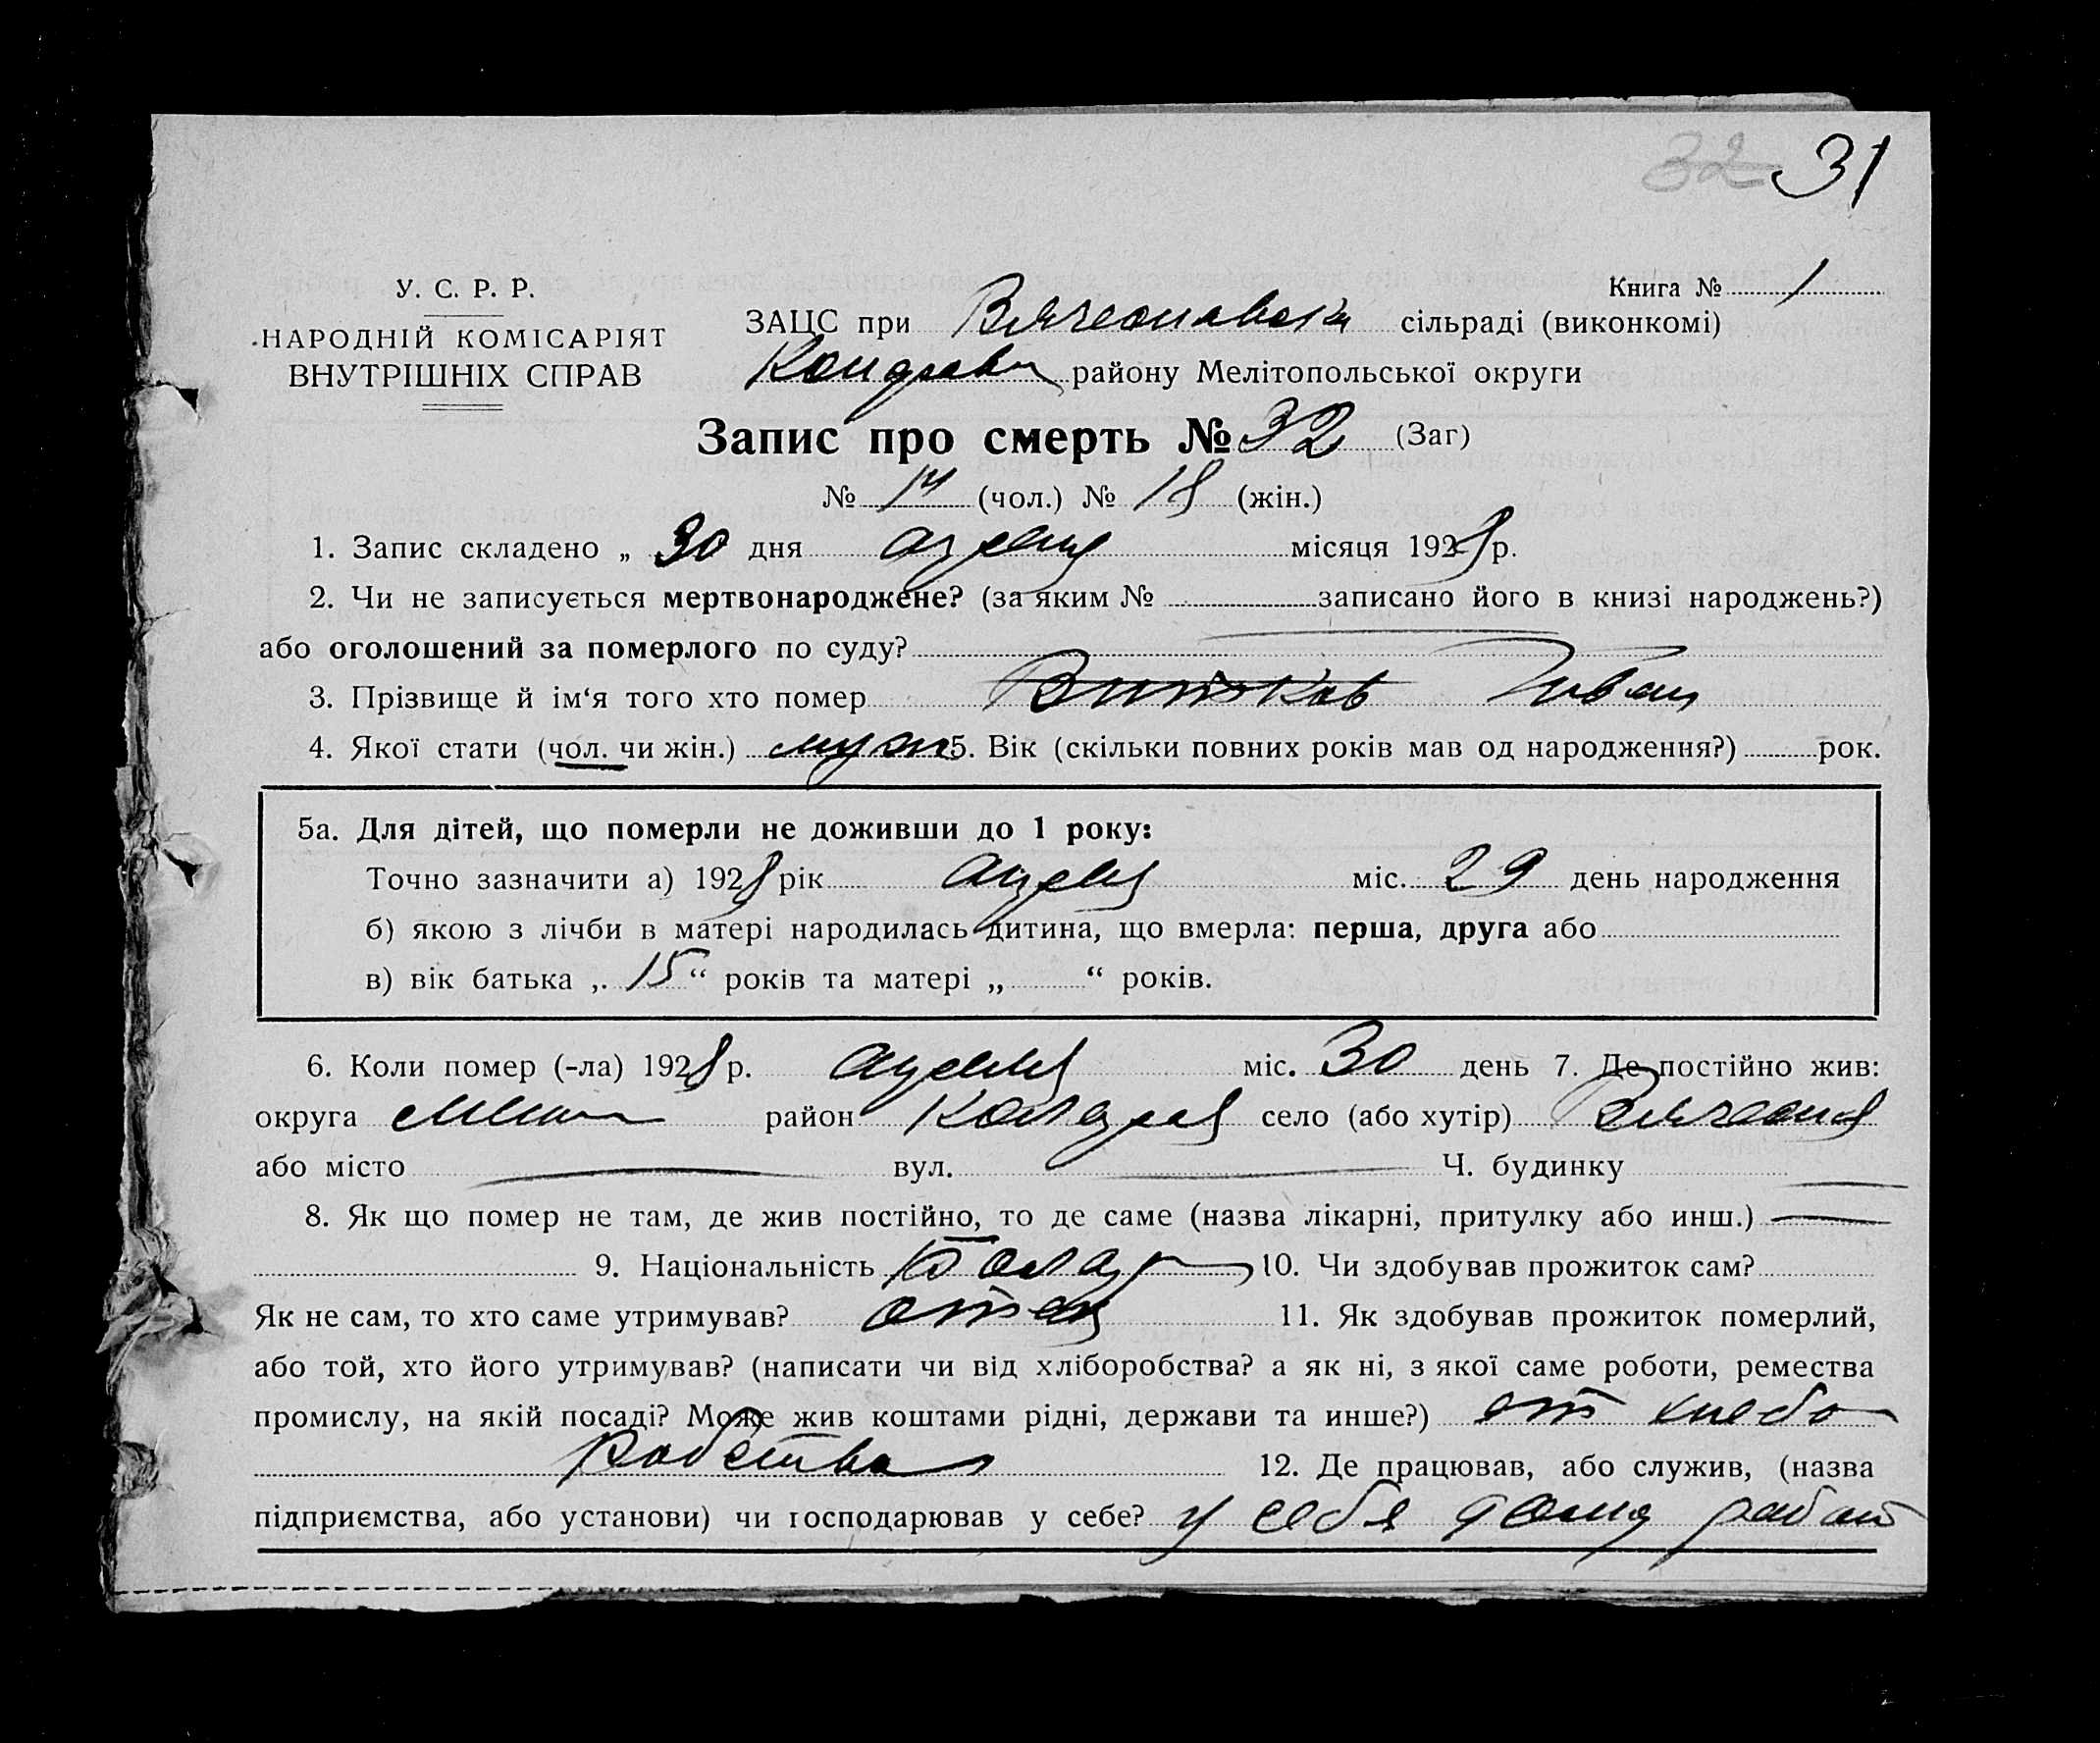 32 31
У. С. Р. Р.
НАРОДНІЙ КОМІСАРІЯТ
ВНУТРІШНІХ СПРАВ
Книга № 1
ЗАЦС при сільраді (виконкомі)
району Мелітопольської округи
Запис про смерть № 32 (Заг)
№ 14 (чол.) № 18 (жін.)
1. Запис складено „ 30 дня апреля місяця 1928 р.
2. Чи не записується мертвонароджене? (за яким № записано його в книзі народжень?)
або оголошений за померлого по суду?
3. Прізвище й ім‘я того хто помер Иван
4. Якої стати (чол. чи жін.) муж 5. Вік (скільки повних років мав од народження?) рок.
5а. Для дітей, що померли не доживши до 1 року:
Точно зазначити а) 1928 рік апреля міс. 29 день народження
б) якою з лічби в матері народилась дитина, що вмерла: перша, друга або
в) вік батька „ 15 “ років та матері „ “ років.
6. Коли помер (-ла) 1928 р. апреля міс. 30 день 7. Де постійно жив:
округа район село (або хутір)
або місто вул. Ч. будинку
8. Як що помер не там, де жив постійно, то де саме (назва лікарні, притулку або инш.)
9. Національність болгар 10. Чи здобував прожиток сам?
Як не сам, то хто саме утримував? отец 11. Як здобував прожиток померлий,
або той, хто його утримував? (написати чи від хліборобства? а як ні, з якої саме роботи, ремества
промислу, на якій посаді? Може жив коштами рідні, держави та инше?) от хлебо
робства 12. Де працював, або служив, (назва
підприємства, або установи) чи господарював у себе? у себя дома работ